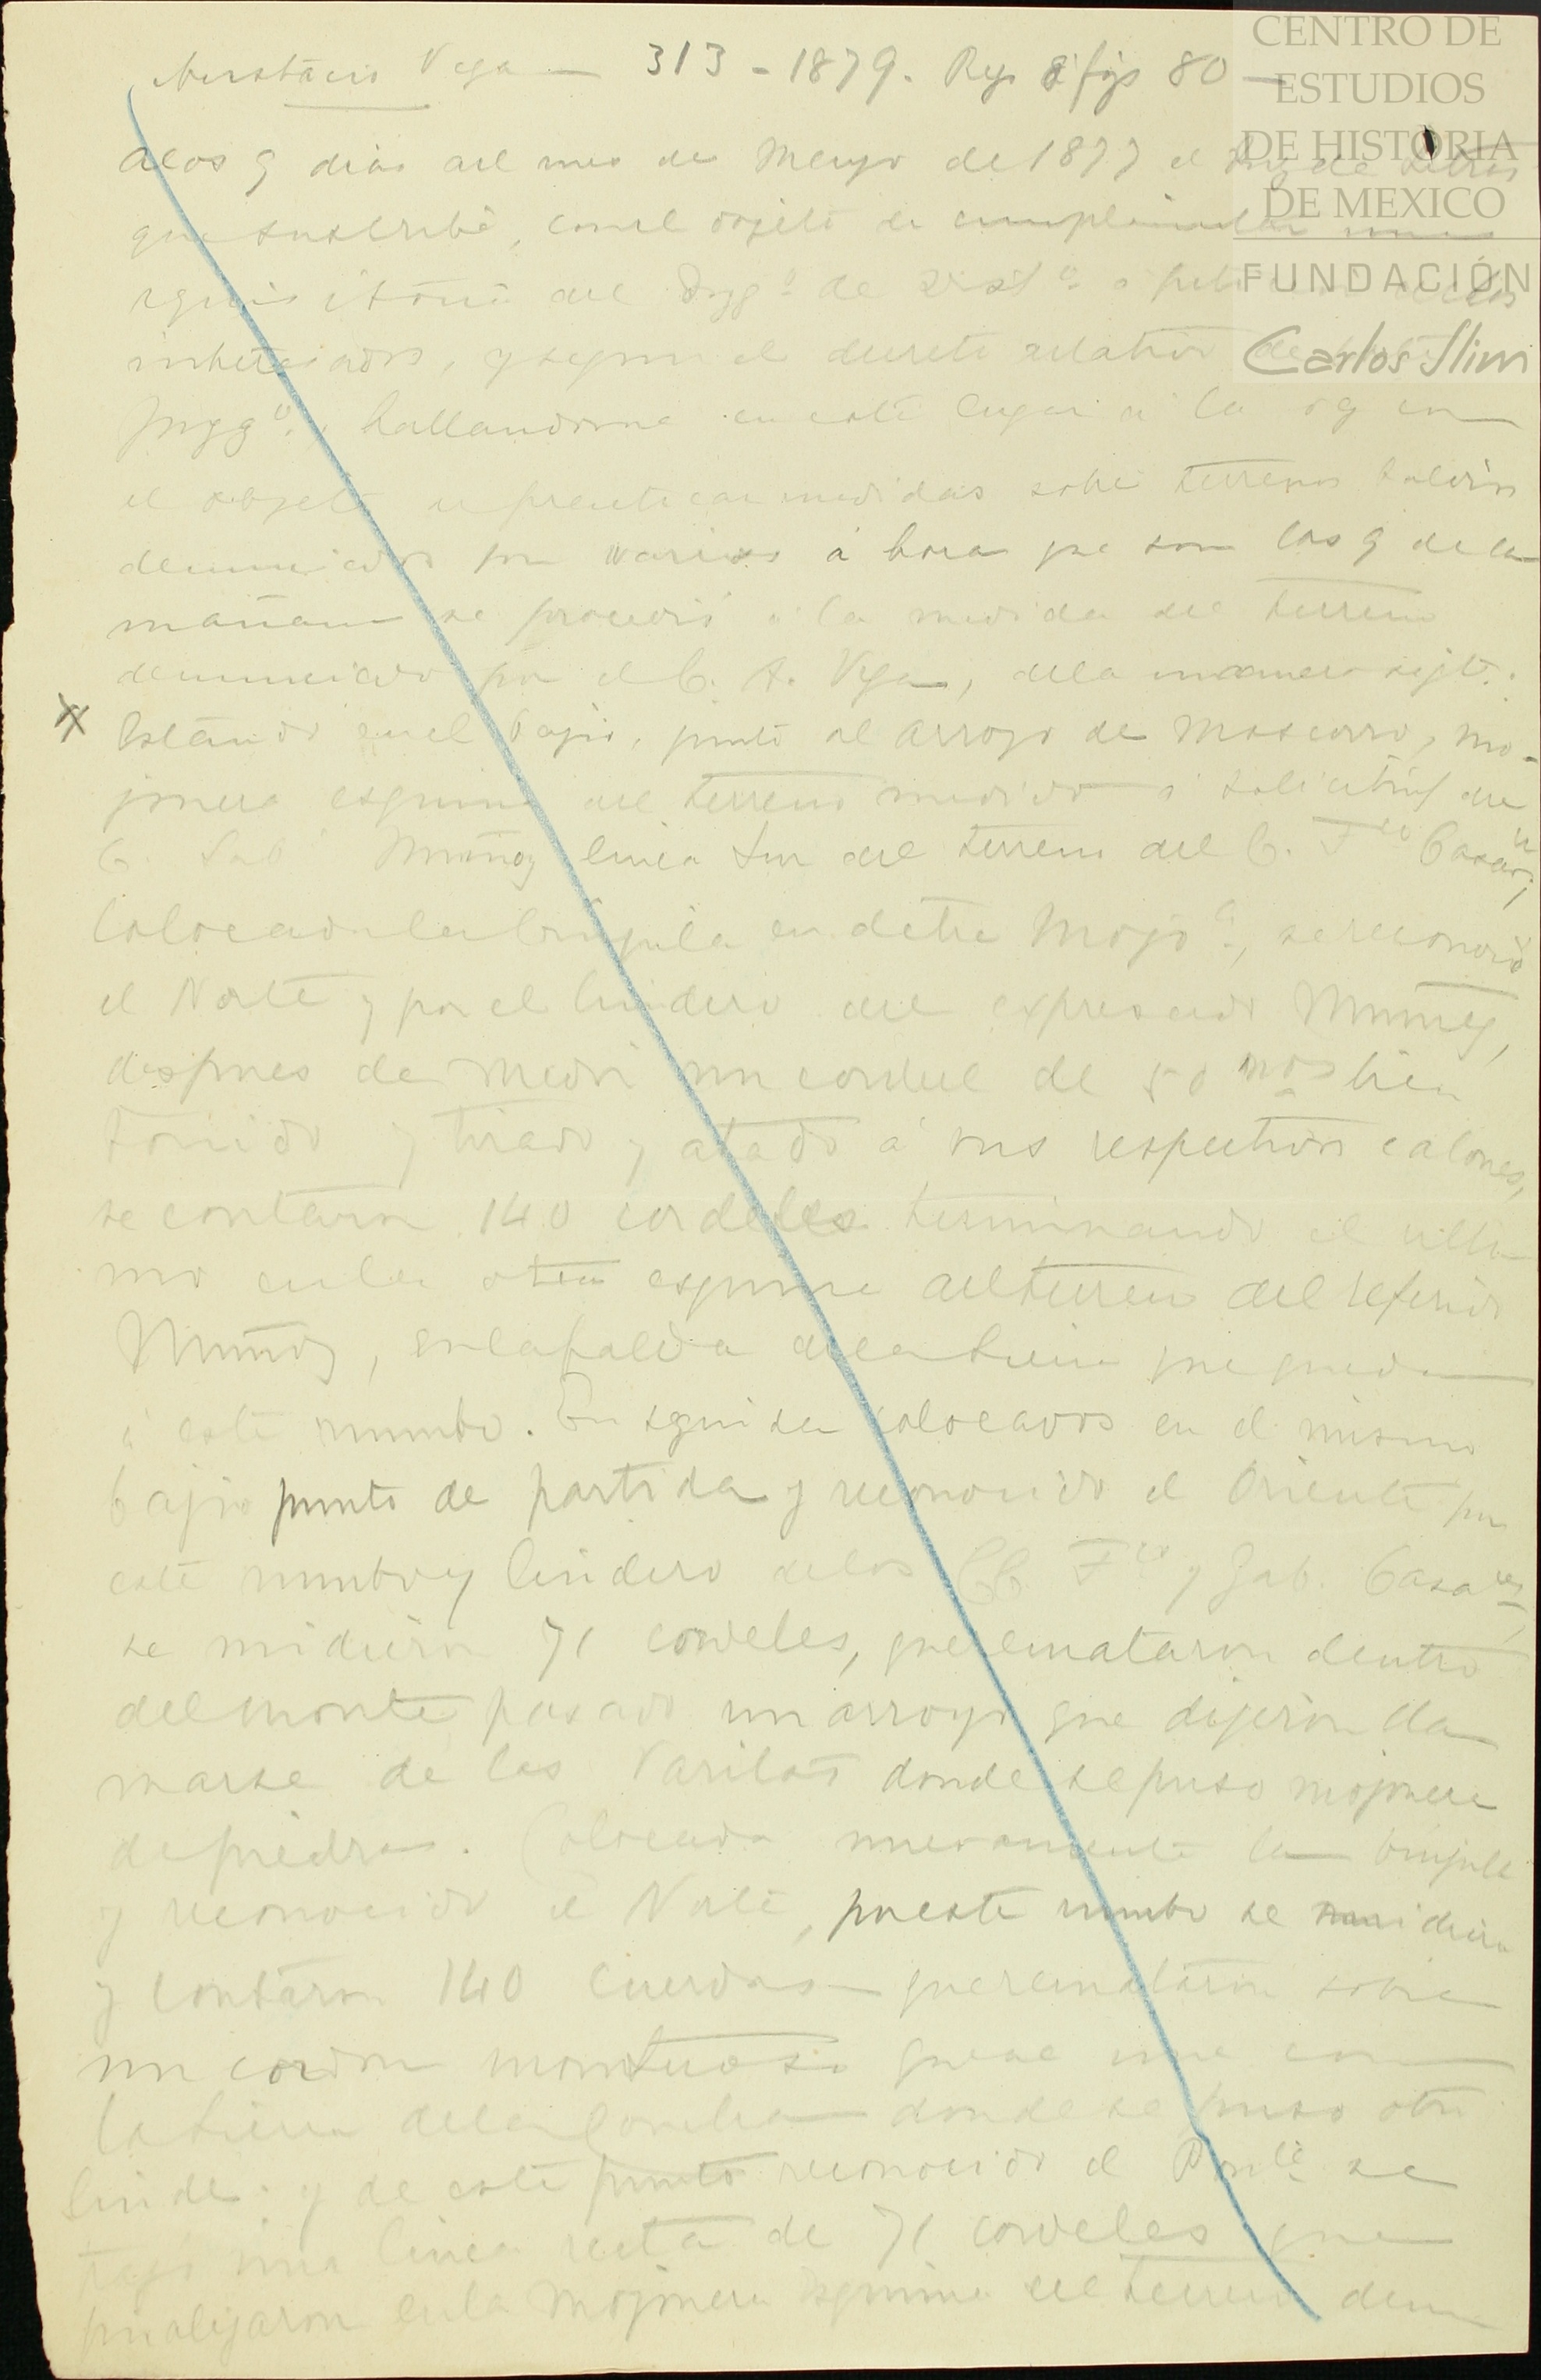 Vega — 313 - 1879. Reg 8 fojs 80 —
CENTRO DE
ESTUDIOS
DE HISTORIA
DE MEXICO
FUNDACIÓN
Carlos Slim
a los 9 dias del mes de Mayo de 1877 el Juez de Letras
que suscribe, con el objeto de
del Juzgº de Distº a
interesados, y segun el decreto relativo de
Juzgº, hallandome en este lugar a la con
el objeto de practicar medidas sobre terrenos baldios
denunciados por varios á hora que son las 9 de la
mañana se procedió a la medida del terreno
denunciado por el C. A. Vega, de la manera sigte.:
X Estando en el bajio, junto al arroyo de Mascorro, mo-
jonera esquina del terreno medido a solicitud del
C. Muñoz linea Sur del terreno del C. Fco Casares,
Colocada la brujula en dicha Mojoª, se reconoció
el Norte y por el lindero del expresado Muñoz,
despues de medir un cordel de 50 bien
torcido y tirado y atado á sus respectivos
se contaron 140 cordeles terminando el ulti
mo en la otra esquina del terreno del referido
Muñoz, en la falda de la Sierra que queda
á este rumbo. En seguida colocados en el mismo
bajio punto de partida y reconocido el Oriente por
este rumbo y lindero de los CC. Fco y Gab. Casares
se midieron 71 cordeles, que remataron dentro
del monte pasado un arroyo que dijeron lla
marse de las Varitas donde se puso mojonera
de piedra. Colocada nuevamente la brujula
y reconocido el Norte, por este rumbo se midieron
y contaron 140 cuerdas que remataron sobre
un cordon montuoso que se une con
la Sierra de la donde se puso otro
linde: y de este punto reconocido el Ponte se
trajo una linea recta de 71 cordeles que
finalizaron en la Mojonera esquina del terreno denun